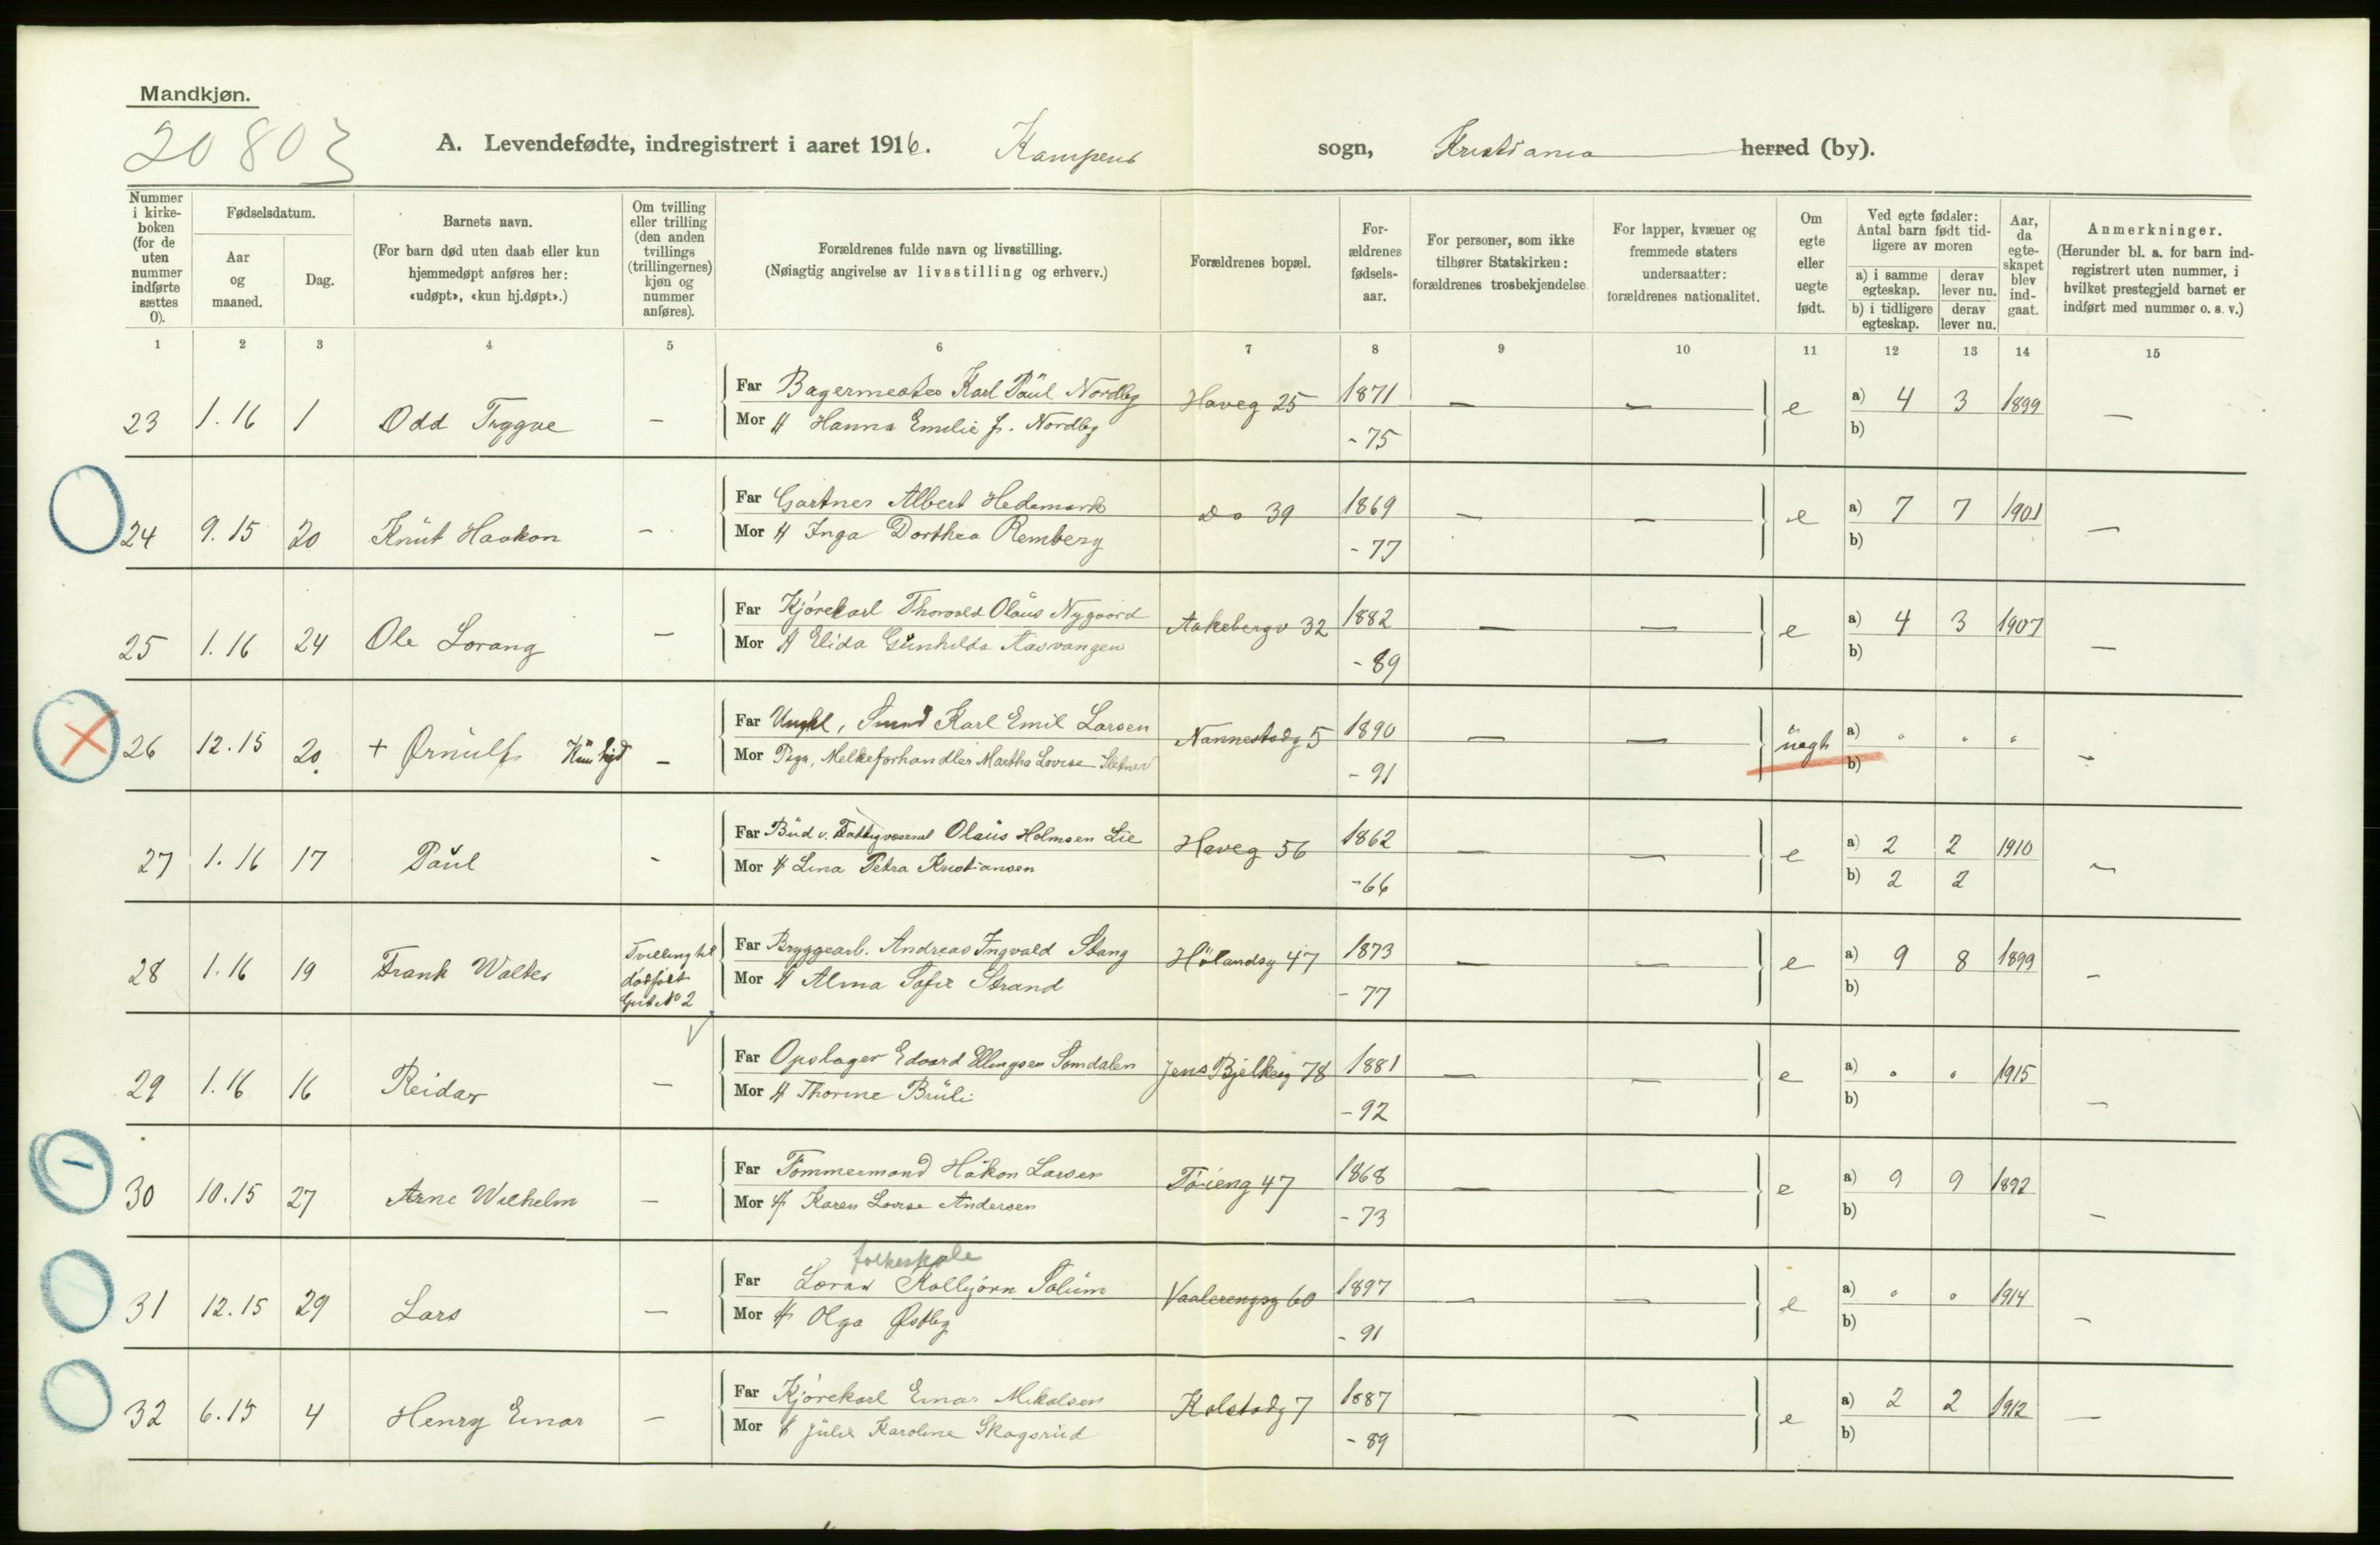 Mandkjøn.
20803
A. Levendefødte, indregistrert i aaret 1916. Kampens sogn, Kristiania herred (by).
Nummer i kirke-boken (for de uten nummer indførte sættes 0).
Fødselsdatum.
Aar og maaned.
Dag.
Barnets navn.
(For barn død uten daab eller kun hjemmedøpt anføres her: «udøpt», «kun hj.døpt».)
Om tvilling eller trilling (den anden tvillings (trillingernes) kjøn og nummer anføres).
Forældrenes fulde navn og livsstilling.
(Nøiagtig angivelse av livsstilling og erhverv.)
Forældrenes bopæl.
For-ældrenes fødsels-aar.
For personer, som ikke tilhører Statskirken: forældrenes trosbekjendelse
For lapper, kvæner og fremmede staters undersaatter: forældrenes nationalitet.
Om egte eller uegte født.
Ved egte fødsler: Antal barn født tid-ligere av moren
a) i samme egteskap. derav lever nu.
b) i tidligere egteskap. derav lever nu.
Aar, da egte-skapet blev ind-gaat.
Anmerkninger.
(Herunder bl. a. for barn ind-registrert uten nummer, i hvilket prestegjeld barnet er indført med nummer o. s. v.)
1 2 3 4 5 6 7 8 9 10 11 12 13 14 15
Far Bagermester Karl Paul Nordbg Haveg 25 1871 — — e a) 4 3 1899 —
23 1.16 1 Odd Tryggve — Mor H Hanna Emilie f. Nordbg - 75 b)
Far Gartner Albert Hedemark Do 39 1869 — — e a) 7 7 1901 —
24 9.15 20 Knut Haakon — Mor H Inga Dorthea Remberg - 77 b)
Far Kjørekarl Thorvald Olaus Nygaard Aakebergv 32 1882 — — e a) 4 3 1907 —
25 1.16 24 Ole Lorang — Mor H Elida Gunhilda Aasvangen - 89 b)
Far Ungkl, Smed Karl Emil Larsen Nannestadg 5 1890 — — uegte a) " " " —
26 12.15 20 + Ørnulf — Mor Pige, Melkeforhandler Martha Lovise - 91 b)
Far Bud v. Fattigvæsenet Olaus Holmsen Lie Haveg 56 1862 — — e a) 2 2 1910 —
27 1.16 17 Paul - Mor H Lina Petra Kristiansen - 66 b) 2 2
Far Bryggearb. Andreas Ingvald Stang Hölandsg 47 1873 — — e a) 9 8 1899 —
28 1.16 19 Frank Walter Tvilling til dødfødt Gut No 2 Mor H Alma Sofie Strand - 77 b)
Far Opslager Edvard Ellingsen Somdalen Jens Bjelkesg 78 1881 — — e a) " " 1915 —
29 1.16 16 Reidar — Mor H Thorine Bruli - 92 b)
Far Tømmermand Håkon Larsen Tøieng 47 1868 — — e a) 9 9 1892 —
30 10.15 27 Arne Wilhelm — Mor H Karen Lovise Andersen - 73 b)
folkeskole
Far Lærer Kolbjørn Solum Vaalerengsg 60 1897 — — e a) " " 1914 —
31 12.15 29 Lars — Mor H Olga Østbg - 91 b)
Far Kjørekarl Einar Mikalsen Kolstadg 7 1887 — — e a) 2 2 1912 —
32 6.15 4 Henry Einar — Mor H Julie Karoline Skogsrud - 89 b)